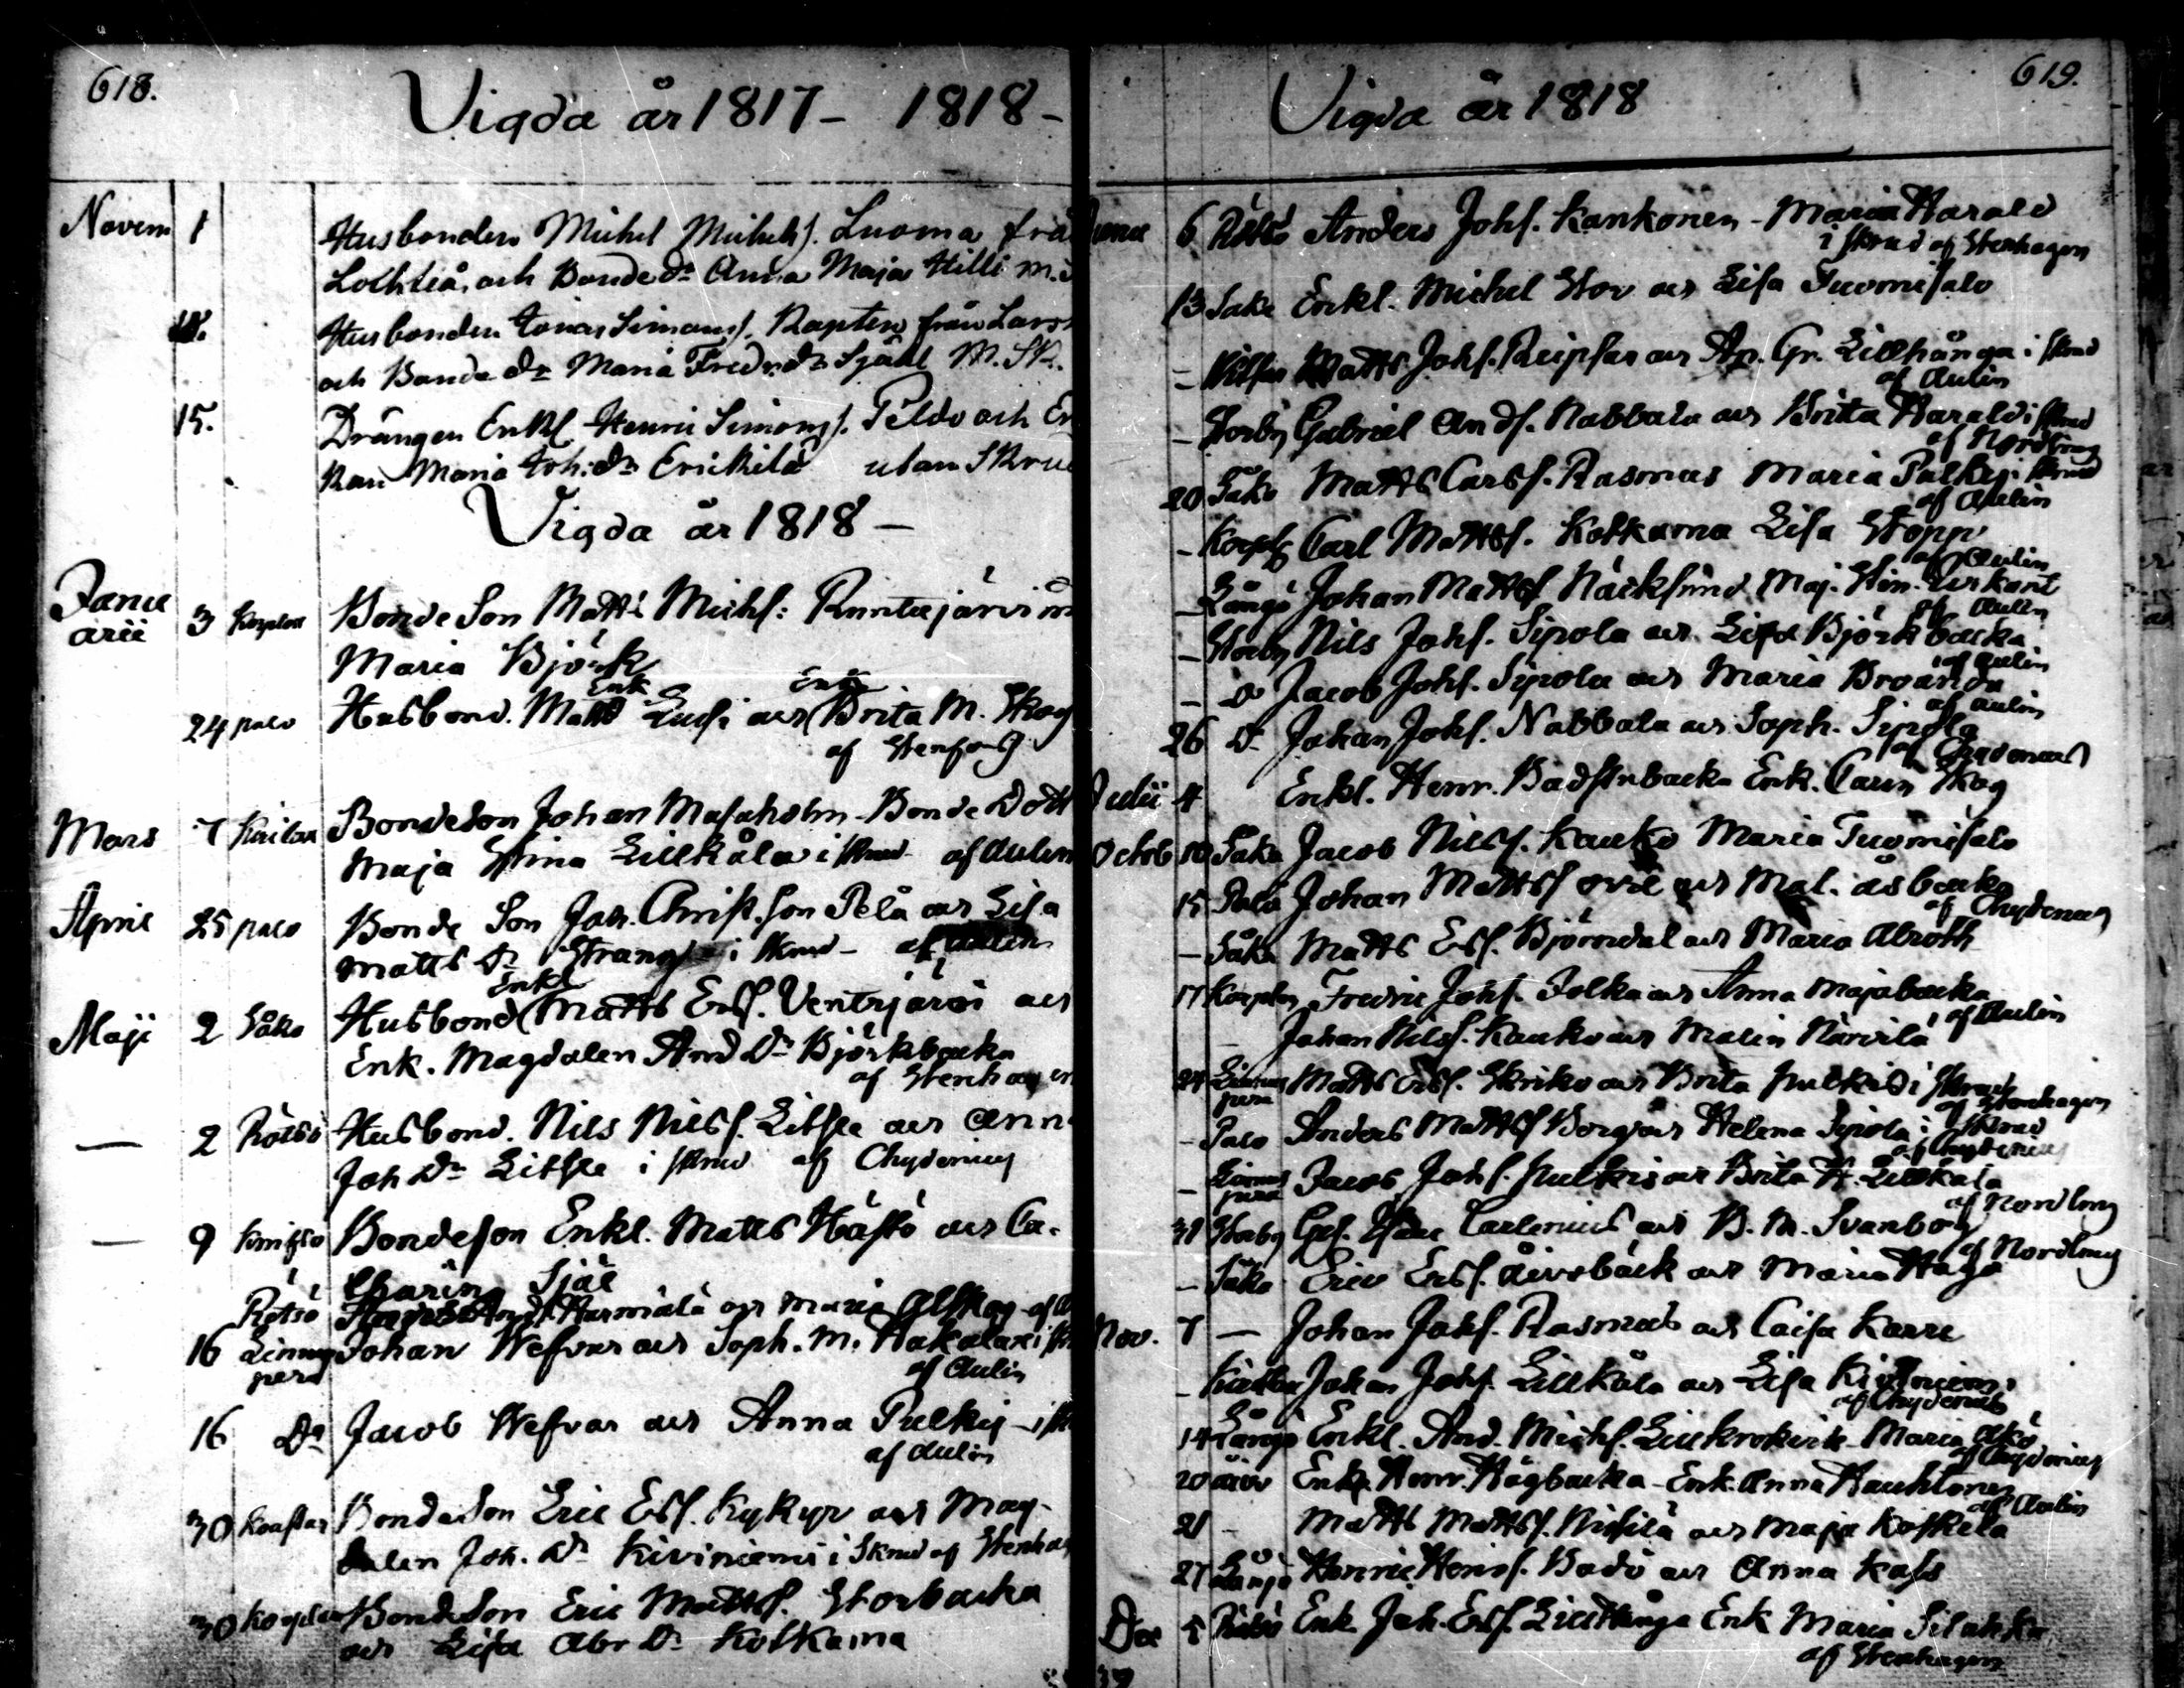 618.
Vigda år 1817 - 1818 -
Novem 1 Husbonden Michel Michels. Luoma frå
Lochteå, och Bonde Dr Anna Maja Hilli m.
Husbonden Simons. från
och Bonde dr Maria Fredr. dr Själl M. Sk.
15. Drängen Enkl Henric Simons. Peldo och En
kan Maria Joh: dr Erickilä utan Skru
Vigda år 1818 -
Janu
arii 3 Korplax Bonde Son Matts Michs: Runtujärvi
Maria Björk
Enk Enk
24 palo Husbond. Matts och Brita M. Skog
af
Mars 7 Bondeson Johan Masaholm - Bonde Dott
Maja Stina Lillkåla i skrud af Aulin
April 25 palo Bonde Son Joh. Christ. son Pelå och Lisa
Matts Dr Strang i skrud - af Aulin
Enkl
Maji 2 Såka Husbond Matts Ers. Ventzjärvi och
Enk. Magdalen And Dr Björkbacka
af Stenhagen
— 2 Rötsö Husbond. Nils Nilss. Litsle och Ann
Joh Dr Litsle i skrud af Chydenius
— 9 Bondeson Enkl. Matts Hästö och Ca-
tharina Själ
Rötsö Harmälä och Maria af
16 Linnus Johan Wefvar och Soph. M. Hakalax i sk
perä af Aulin
16 Do Jacob Wefvar och Anna Pulkis - i sk
af Aulin
30 Bondeson Eric Ess. Kykyr och Mag-
dalen Joh. Dr Kiviniemi i Skrud af Stenhag
30 Korplax Bondeson Eric Matts. Storbacka
och Lisa Abr Dr Kotkama
619.
Vigda år 1818
Junii 6 Rötsö Anders Johs. Kankonen - Maria Harald
i skrud af Stenhagen
13 Såka Enkl. Michel Stor och Lisa Tuomisalo
- Matts Johs. Reipsar och An. Gr. Lillhånga i skrud
af Aulin
- Storby Gabriel Ands. Nabbala och Brita Harald i skrud
af Nordling
20 Såka Matts Carss. Rasmus Maria Pulkis. skrud
af Aulin
- Korplx Carl Matts. Kotkama Lisa Stopp
af Aulin
- Långö Johan Matts Näcksund Maj. Stin. Lerkant
af Aulin
- Storby Nils Johs. Sipola och Lisa Björkbacka
af Aulin
- Do Jacob Johs. Sipola och Maria Broända
af Aulin
26 Do Johan Johs. Nabbala och Soph. Sipola
af Chydenius
Julii 4 Enkl. Henr. Badstubacka Enk. Carin Skog
Octob 10 Såka Jacob Nilss. Kauko Maria Tuomisalo
15 Palo Johan Matts och Mal. åsbacka
af Chydenius
- Såka Matts Ess. Björndal och Maria Abroth
17 Korplax Fredric Johs. Jolka och Anna Majabacka
af Aulin
- Johan Nilss. Kauko och Malin Närvilä
24 Linnus Matts Ers. Skriko och Brita Pulkis i Skrud
perä af Stenhagen
- Palo Anders Matts Borg och Helena Sipola i skrud
af Chydenius
- Linnus Jacob Johs. Pulkis och Brita H. Lillkåla
perä af Nordling
31 Storby Carlenius och B. M. Svanborg
af Nordling
- Såka Eric Erss. Åivobäck och Maria Haga
Nov. 7 — Johan Johs. Rasmus och Caisa Karre
- Johan Johs. Lillkåla och Lisa Kiviniemi
af Chydenius
14 Långö Enkl. And. Michs. Lillkrokvik Maria åkö
af Chydenius
20 Enkl. Henr. Högbacka - Enk. Anna Hauktonen
af Aulin
21 - Matts Matts. Nisilä och Maja Koskela
27 Långö Henric Henrs. Bodö och Anna Kass
Dec 5 Rötsö Enk. Joh. Ess. Lillhånga Enk Maria Silahka
af Stenhagen